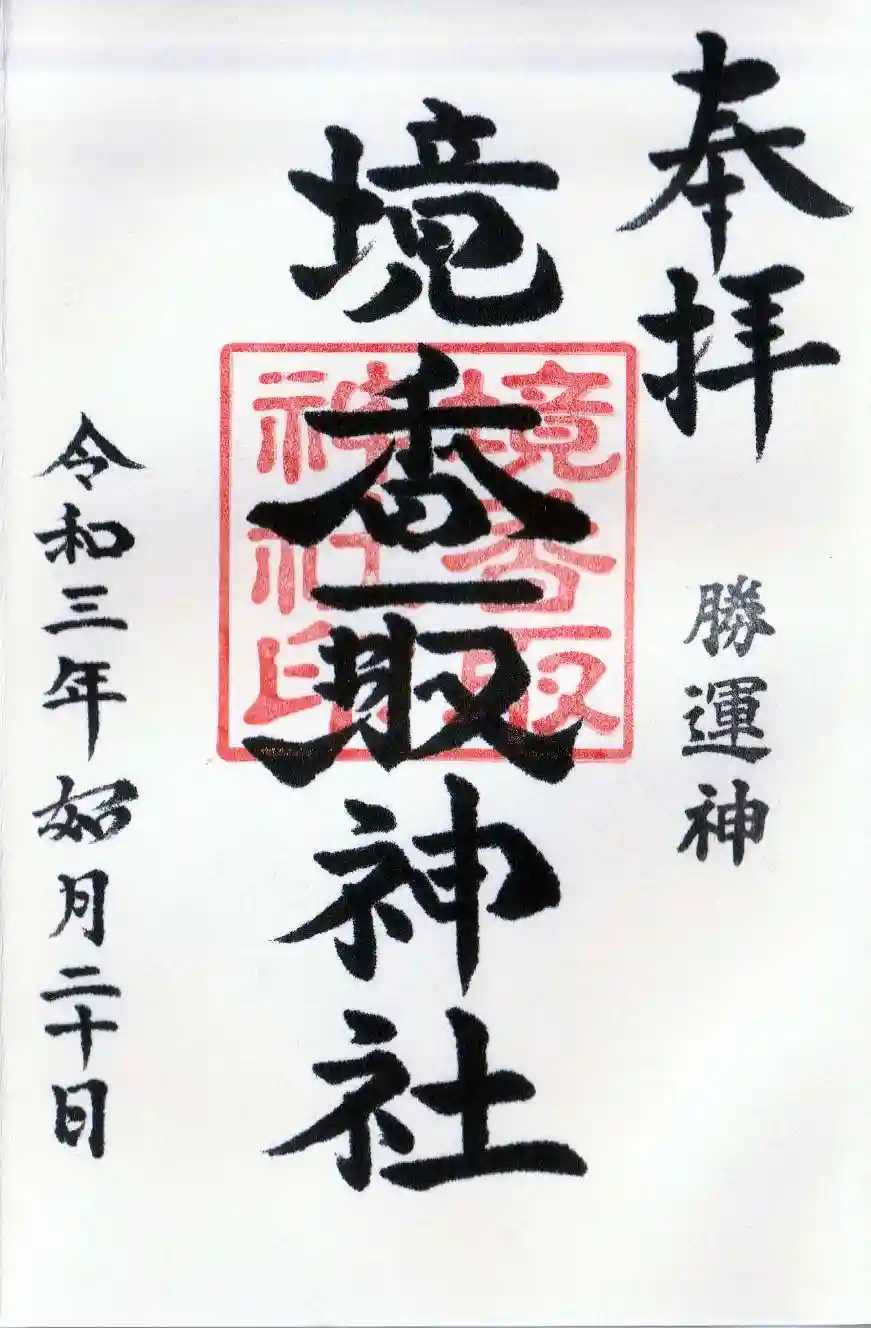 奉拝
勝運神
境香取神社
境香取
神社印
令和三年如月二十日